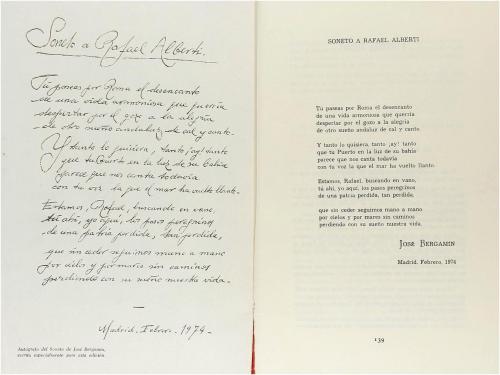 Soneto a Rafael Alberti.
Tú paseas por Roma el desencanto
de una vida armoniosa que querría
despertar por el gozo a la alegría
de otro sueño andaluz de cal y canto.
Y tanto lo quisiera, tanto, ¡ay! tanto
que tu Puerto en la luz de su bahía
parece que nos canta todavía
con tu voz la que el mar ha vuelto llanto.
Estamos, Rafael, buscando en vano,
tú ahí, yo aquí, los pasos peregrinos
de una patria perdida, tan perdida,
que sin ceder seguimos mano a mano
por cielos y por mares sin caminos
perdiendo con su sueño nuestra vida.
Madrid. Febrero. 1974.
Autógrafo del Soneto de José Bergamín,
escrito especialmente para esta edición.
SONETO A RAFAEL ALBERTI
Tú paseas por Roma el desencanto
de una vida armoniosa que querría
despertar por el gozo a la alegría
de otro sueño andaluz de cal y canto.
Y tanto lo quisiera, tanto, ¡ay! tanto
que tu Puerto en la luz de su bahía
parece que nos canta todavía
con tu voz la que el mar ha vuelto llanto.
Estamos, Rafael, buscando en vano,
tú ahí, yo aquí, los pasos peregrinos
de una patria perdida, tan perdida,
que sin ceder seguimos mano a mano
por cielos y por mares sin caminos
perdiendo con su sueño nuestra vida.
JOSÉ BERGAMÍN
Madrid. Febrero, 1974
139